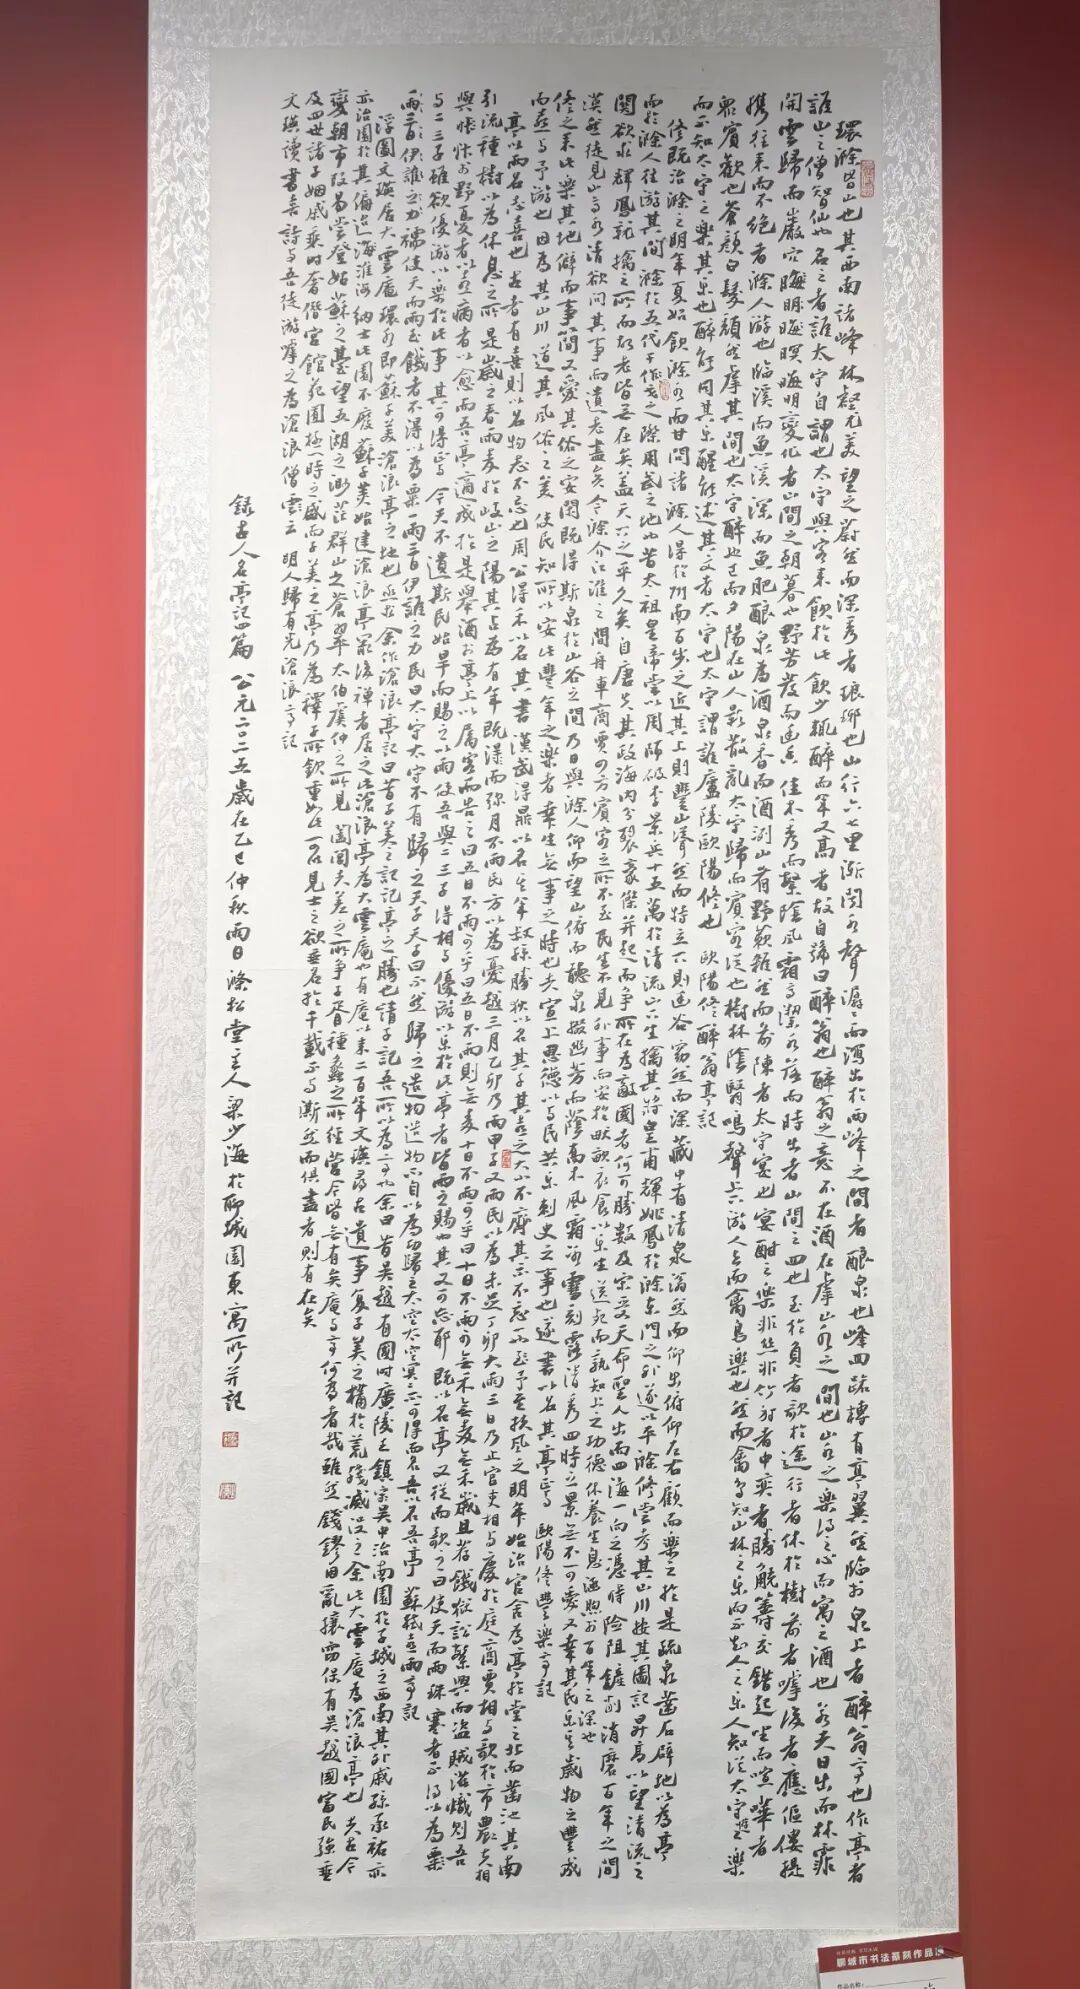 環滁皆山也其西南諸峰林壑尤美望之蔚然而深秀者琅琊也山行六七里漸聞水聲潺潺而瀉出於兩峰之間者釀泉也峰回路轉有亭翼然臨於泉上者醉翁亭也作亭者
誰山之僧智仙也名之者誰太守自謂也太守與客來飲於此飲少輒醉而年又高者故自號曰醉翁也醉翁之意不在酒在乎山水之間也山水之樂得之心而寓之酒也若夫日出而林霏
開雲歸而巖穴晦明晦暝晦明變化者山間之朝暮也野芳發而幽香佳木秀而繁陰風霜高潔水落而時出者山間之四也至於負者歌於途行者休於樹前者呼後者應傴僂提
攜往來而不絕者滁人游也臨溪而魚溪深而魚肥釀泉為酒泉香而酒洌山肴野蔌雜然而前陳者太守宴也宴酣之樂非絲非竹射者中弈者勝觥籌交錯起坐而喧嘩者
眾賓歡也蒼顏白髮頹然乎其間也太守醉也已而夕陽在山人影散亂太守歸而賓客從也樹林陰翳鳴聲上下游人去而禽鳥樂也然而禽鳥知山林之樂而不知人之樂人知從太守遊樂
而不知太守之樂其樂也醉能同其樂醒能述其文者太守也太守謂誰廬陵歐陽修也 歐陽修醉翁亭記
修既治滁之明年夏始飲滁水而甘問諸滁人得於州南百步之近其上則豐山聳然而特立下則幽谷窈然而深藏中有清泉滃然而仰出俯仰左右顧而樂之於是疏泉鑿石辟地以為亭
而於滁人往游其間滁於五代干戈之際用武之地也昔太祖皇帝嘗以周師破李景兵十五萬於清流山下生擒其將皇甫輝姚鳳於滁東門之外遂以平滁修嘗考其山川按其圖記昇高以望清流之
關欲求輝鳳就擒之所而故老皆無在矣蓋天下之平久矣自唐失其政海內分裂豪傑并起而爭所在為敵國者何可勝數及宋受天命聖人出而四海一向之憑恃險阻鏟削消磨百年之間
漠然徒見山高水清欲問其事而遺老盡矣今滁介江淮之間舟車商賈四方賓客之所不至民生不見外事而安於畎畝衣食以樂生送死而孰知上之功德休養生息涵煦於百年之深也
修之來此樂其地僻而事簡又愛其俗之安閑既得斯泉於山谷之間乃日與滁人仰而望山俯而聽泉掇幽芳而蔭喬木風霜冰雪刻露清秀四時之景無不可愛又幸其民樂其歲物之豐成
而喜與予游也因為其山川道其風俗之美使民知所以安此豐年之樂者幸生無事之時也夫宣上恩德以與民共樂刺史之事也遂書以名其亭焉 歐陽修豐樂亭記
亭以雨名志喜也古者有喜則以名物志不忘也周公得禾以名其書漢武得鼎以名其年叔孫勝狄以名其子其喜之大小不齊其示不忘一也予至扶風之明年始治官舍為亭於堂之北而鑿池其南
引流種樹以為休息之所是歲之春雨麥於岐山之陽其占為有年既而彌月不雨民方以為憂越三月乙卯乃雨甲子又雨民以為未足丁卯大雨三日乃止官吏相與慶於庭商賈相與歌於市農夫相
與忭於野憂者以喜病者以愈而吾亭適成於是舉酒於亭上以屬客而告之曰五日不雨可乎曰五日不雨則無麥十日不雨可乎曰十日不雨則無禾無麥無禾歲且荐饑獄訟繁興而盜賊滋熾則吾
與二三子雖欲優游以樂於此事其可得焉今天不遺斯民始旱而賜之以雨使吾與二三子得相與優游以樂於此亭者皆雨之賜也其又可忘耶既以名亭又從而歌之曰使天而雨珠寒者不得以為
襦使天而雨玉饑者不得以為粟一雨三日伊誰之力民曰太守太守不有歸之天子天子曰不然歸之造物造物不自以為功歸之太空太空冥冥不可得而名吾以名吾亭 蘇軾喜雨亭記
浮圖文瑛居大雲庵環水即蘇子美滄浪亭之地也亟求余作滄浪亭記曰昔子美之記記亭之勝也請子記吾所以為亭者余曰昔吳越有國時廣陵王鎮吳中治南園於子城之西南其外戚孫承祐亦
亦治園於其偏迨淮海納土此園不廢蘇子美始建滄浪亭最後禪者居之此滄浪亭為大雲庵也有庵以來二百年文瑛尋古遺事復子美之構於荒殘滅沒之余此大雲庵為滄浪亭也夫古今
變朝市改易嘗登姑蘇之臺望五湖之渺茫群山之蒼翠太伯虞仲之所建闔閭夫差之所爭子胥種蠡之所經營今皆無有矣庵與亭何為者哉雖然錢鏐因亂攘竊保有吳越國富民強垂
及四世諸子姻戚乘時奢僭宮館苑囿極一時之盛而子美之亭乃為釋子所欽重如此可見士之欲垂名於千載不與澌然而俱盡者則有在矣
文瑛讀書喜詩與吾徒游呼之為滄浪僧云 明人歸有光滄浪亭記
錄古人名亭記四篇 公元二〇二五歲在乙巳仲秋雨日滌松堂主人梁少海於聊城園東寓所并記
聊城市书法篆刻作品
作品名称: